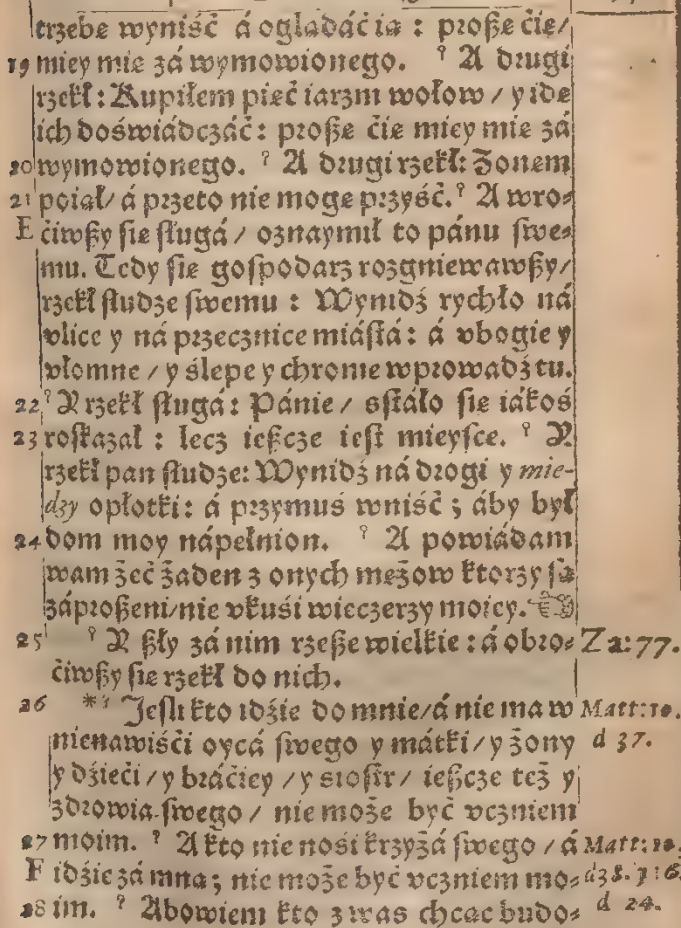 trzebę wyniść á oglądáć ią : proßę ćię/
19 miey mię zá wymowionego. ꝰ A drugi
rzekł: Kupiłem pięć iarzm wołow / y idę
ich doświádczáć: proßę ćię miey mię zá
20 wymowionego. ꝰ A drugi rzekł: Żonęm
21 poiął/ á przeto nie mogę przyść. ꝰ A wro⸗
E ćiwßy się sługá / oznaymił to pánu swe⸗
mu. Tedy się gospodarz rozgniewawßy/
rzekł słudze swemu : Wynidź rychło ná
vlice y ná przecznice miástá: á vbogie y
vłomne / y ślepe y chrome wprowadź tu.
22 ꝰ Y rzekł sługá: Pánie / sstáło się iákoś
23 roskazał : lecz ießcze iest mieysce. ꝰ Y
rzekł pan słudze: Wynidź ná drogi y mie-
dzy opłotki: á przymuś wniść ; áby był
24 dom moy nápełnion. ꝰ A powiádam
wam żeć żaden z onych mężow ktorzy są
záproßeni/nie vkuśi wieczerzy moiey.☜
25 ꝰ Y ßły zá nim rzeße wielkie : á obro⸗ Z a: 77.
ćiwßy się rzekł do nich.
26 *ꝰ Jesli kto idźie do mnie/á nie ma w Matt: 10.
nienawiśći oycá swego y mátki/y żony d 37.
y dźieći / y bráćiey / y siostr/ ießcze też y
zdrowia swego / nie może być vczniem
27 moim. ꝰ A kto nie nośi krzyżá swego / á Matt: 10.
F idźie zá mną; nie może być vczniem mo⸗ d 38. y 16.
28 im. ꝰ Abowiem kto z was chcąc budo⸗ d 24.